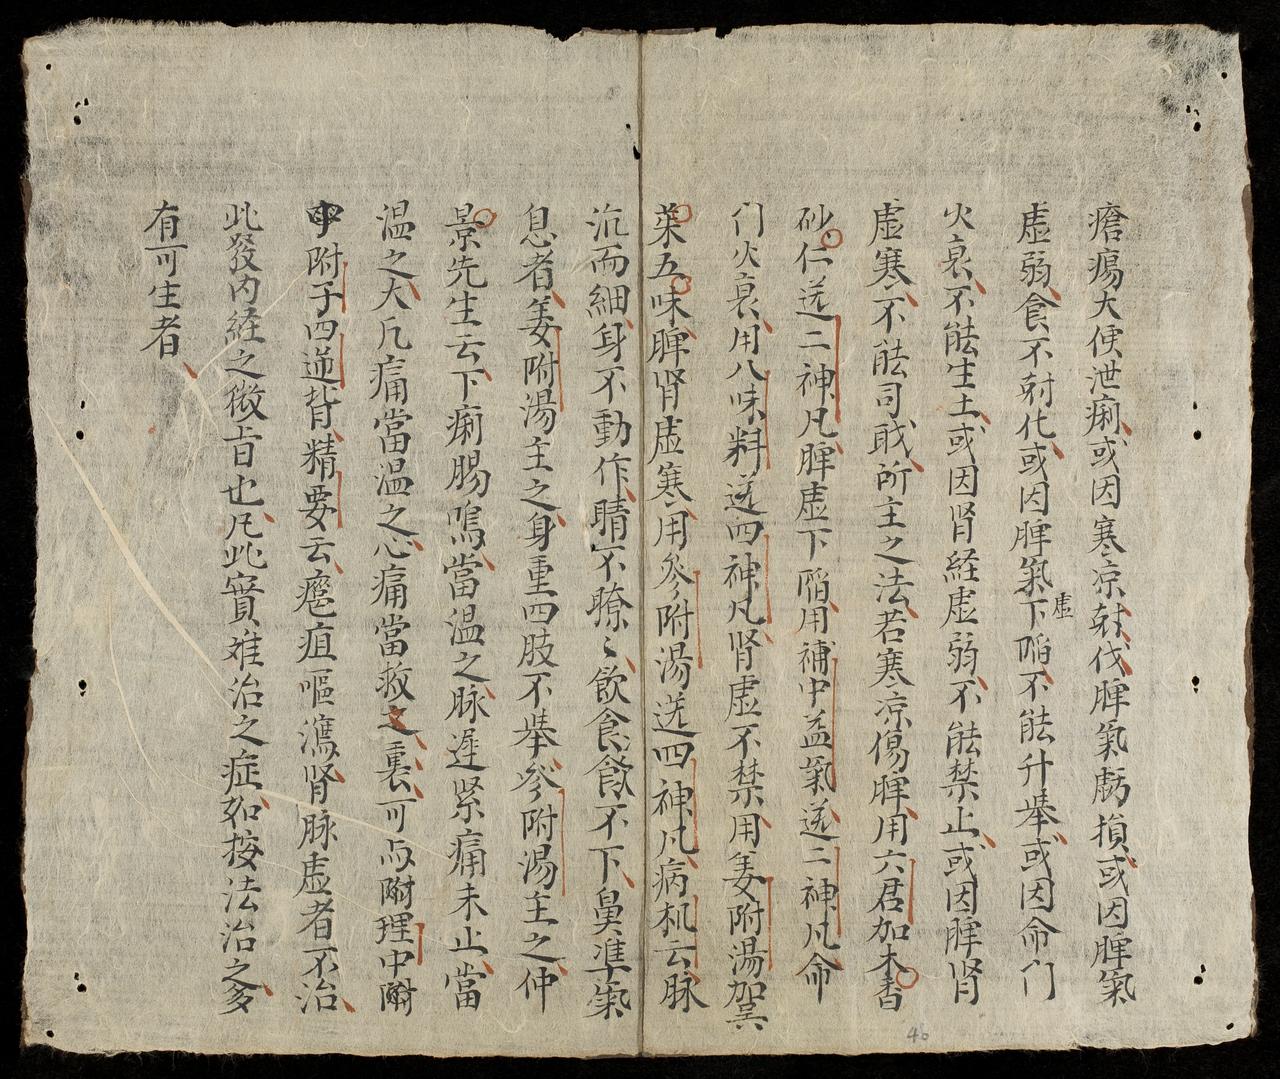 瘡瘍大便泄痢或因寒凉尅伐脾氣虧損或因脾氣
虛弱食不尅化或因脾氣虛下陷不能升舉或因命门
火衰不能生土或因肾経虛弱不能禁止或因脾肾
虛寒不能司職所主之法若寒凉傷脾用六君加木香
砂仁送二神凡脾虛下陷用補中益氣送二神凡命
门火衰用八味料送四神凡肾虛不禁用姜附湯加吳
茱五味脾肾虛寒用參附湯送四神凡病机云脉
沉而細身不動作睛不瞭〻飲食不下鼻準氣
息者姜附湯主之身重四肢不舉參附湯主之仲
景先生云下痢腸鳴當温之脉遲紧痛未止當
温之大凡痛當温之心痛當救之裏可与附理中附
中附子四逆背精要云瘡疽嘔瀉肾脉虛者不治
此發内経之微旨也凡此實难治之症如按法治之多
有可生者
46